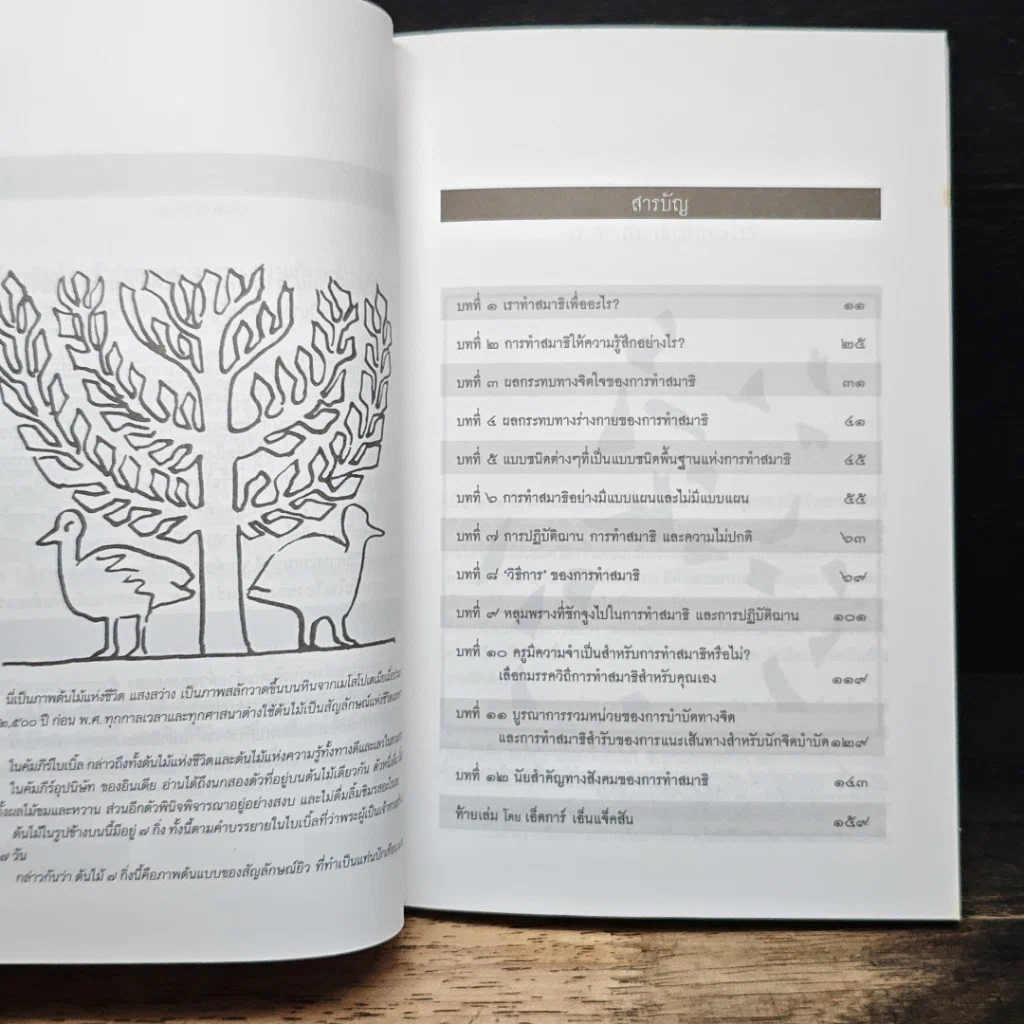 นี่เป็นภาพต้นไม้แห่งชีวิต แสงสว่าง เป็นภาพสลักวาดขึ้นบนหินจากเมโสโปเตเมียเมื่อ
๒,๕๐๐ ปี ก่อน พ.ศ. ทุกกาลเวลาและทุกศาสนาต่างใช้ต้นไม้เป็นสัญลักษณ์แห่งชีวิต
ในคัมภีร์ไบเบิ้ล กล่าวถึงทั้งต้นไม้แห่งชีวิต และต้นไม้แห่งความรู้ทั้งทางดีและเลว
ในคัมภีร์อุปนิษัท ของอินเดีย อ่านได้ถึงนกสองตัวที่อยู่บนต้นไม้เดียวกัน ตัวหนึ่ง
ทั้งผลไม้ขมและหวาน ส่วนอีกตัวพินิจพิจารณาอยู่อย่างสงบ และไม่ดื่มลิ้มชิมรส
ต้นไม้ในรูปข้างบนนี้มีอยู่ ๗ กิ่ง ทั้งนี้ตามคำบรรยายในไบเบิ้ลที่ว่าพระผู้เป็นเจ้า
๗ วัน
กล่าวกันว่า ต้นไม้ ๗ กิ่งนี้คือภาพต้นแบบของสัญลักษณ์ยิว ที่ทำเป็นแท่นปักเทียน
สารบัญ
บทที่ ๑ เราทำสมาธิเพื่ออะไร? ๑๑
บทที่ ๒ การทำสมาธิให้ความรู้สึกอย่างไร? ๒๕
บทที่ ๓ ผลกระทบทางจิตใจของการทำสมาธิ ๓๑
บทที่ ๔ ผลกระทบทางร่างกายของการทำสมาธิ ๔๑
บทที่ ๕ แบบชนิดต่างๆที่เป็นแบบชนิดพื้นฐานแห่งการทำสมาธิ ๔๕
บทที่ ๖ การทำสมาธิอย่างมีแบบแผนและไม่มีแบบแผน ๕๕
บทที่ ๗ การปฏิบัติฌาน การทำสมาธิ และความไม่ปกติ ๖๓
บทที่ ๘ ‘วิธีการ’ ของการทำสมาธิ ๖๙
บทที่ ๙ หลุมพรางที่ชักจูงไปในการทำสมาธิ และการปฏิบัติฌาน ๑๐๑
บทที่ ๑๐ ครูมีความจำเป็นสำหรับการทำสมาธิหรือไม่?
เลือกมรรควิถีการทำสมาธิสำหรับคุณเอง ๑๑๙
บทที่ ๑๑ บูรณาการรวมหน่วยของการบำบัดทางจิต
และการทำสมาธิสำรับของการแนะเส้นทางสำหรับนักจิตบำบัด ๑๒๙
บทที่ ๑๒ นัยสำคัญทางสังคมของการทำสมาธิ ๑๔๓
ท้ายเล่ม โดย เอ็ดการ์ เอ็นแจ็คสัน ๑๕๙